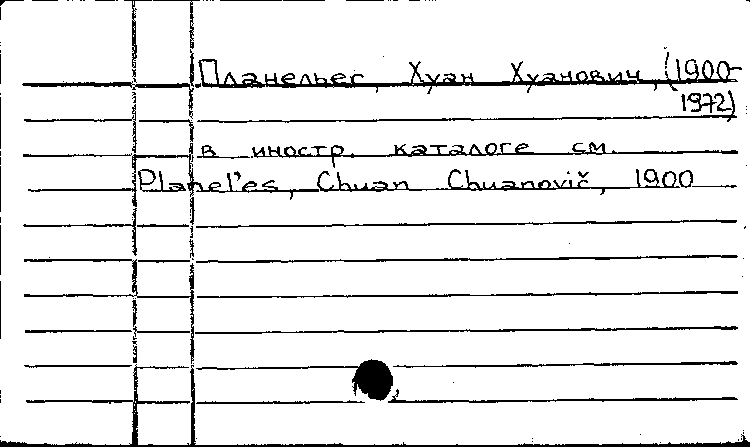 Планельес, Хуан Хуанович, (1900-
1972)
в иностр. каталоге см.
Planel'es, Chuan Chuanovič, 1900